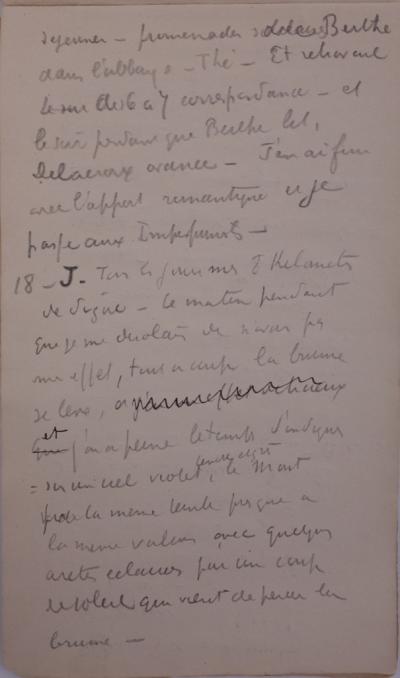 dejeuner — promenades Berthe
dans l'abbaye — Thé — Et retravail
Le soir de 6 a 7 correspondance — et
le soir pendant que Berthe lit,
Delacroix avance — J'en ai fini
avec l'apport romantique et je
passe aux Impressionnistes —
18 — J. Tous les jours mes
de Signe — Le matin pendant
que je me desolais de n'avoir pas
mon effet, tout a coup la brume
se leve,
et j'ai a peine le temps d'indiquer
= sur un ciel violet, le Mont
de la meme teinte presque a
la meme valeur avec quelques
aretes eclairées par un coup
de soleil qui vient de percer la
brume —